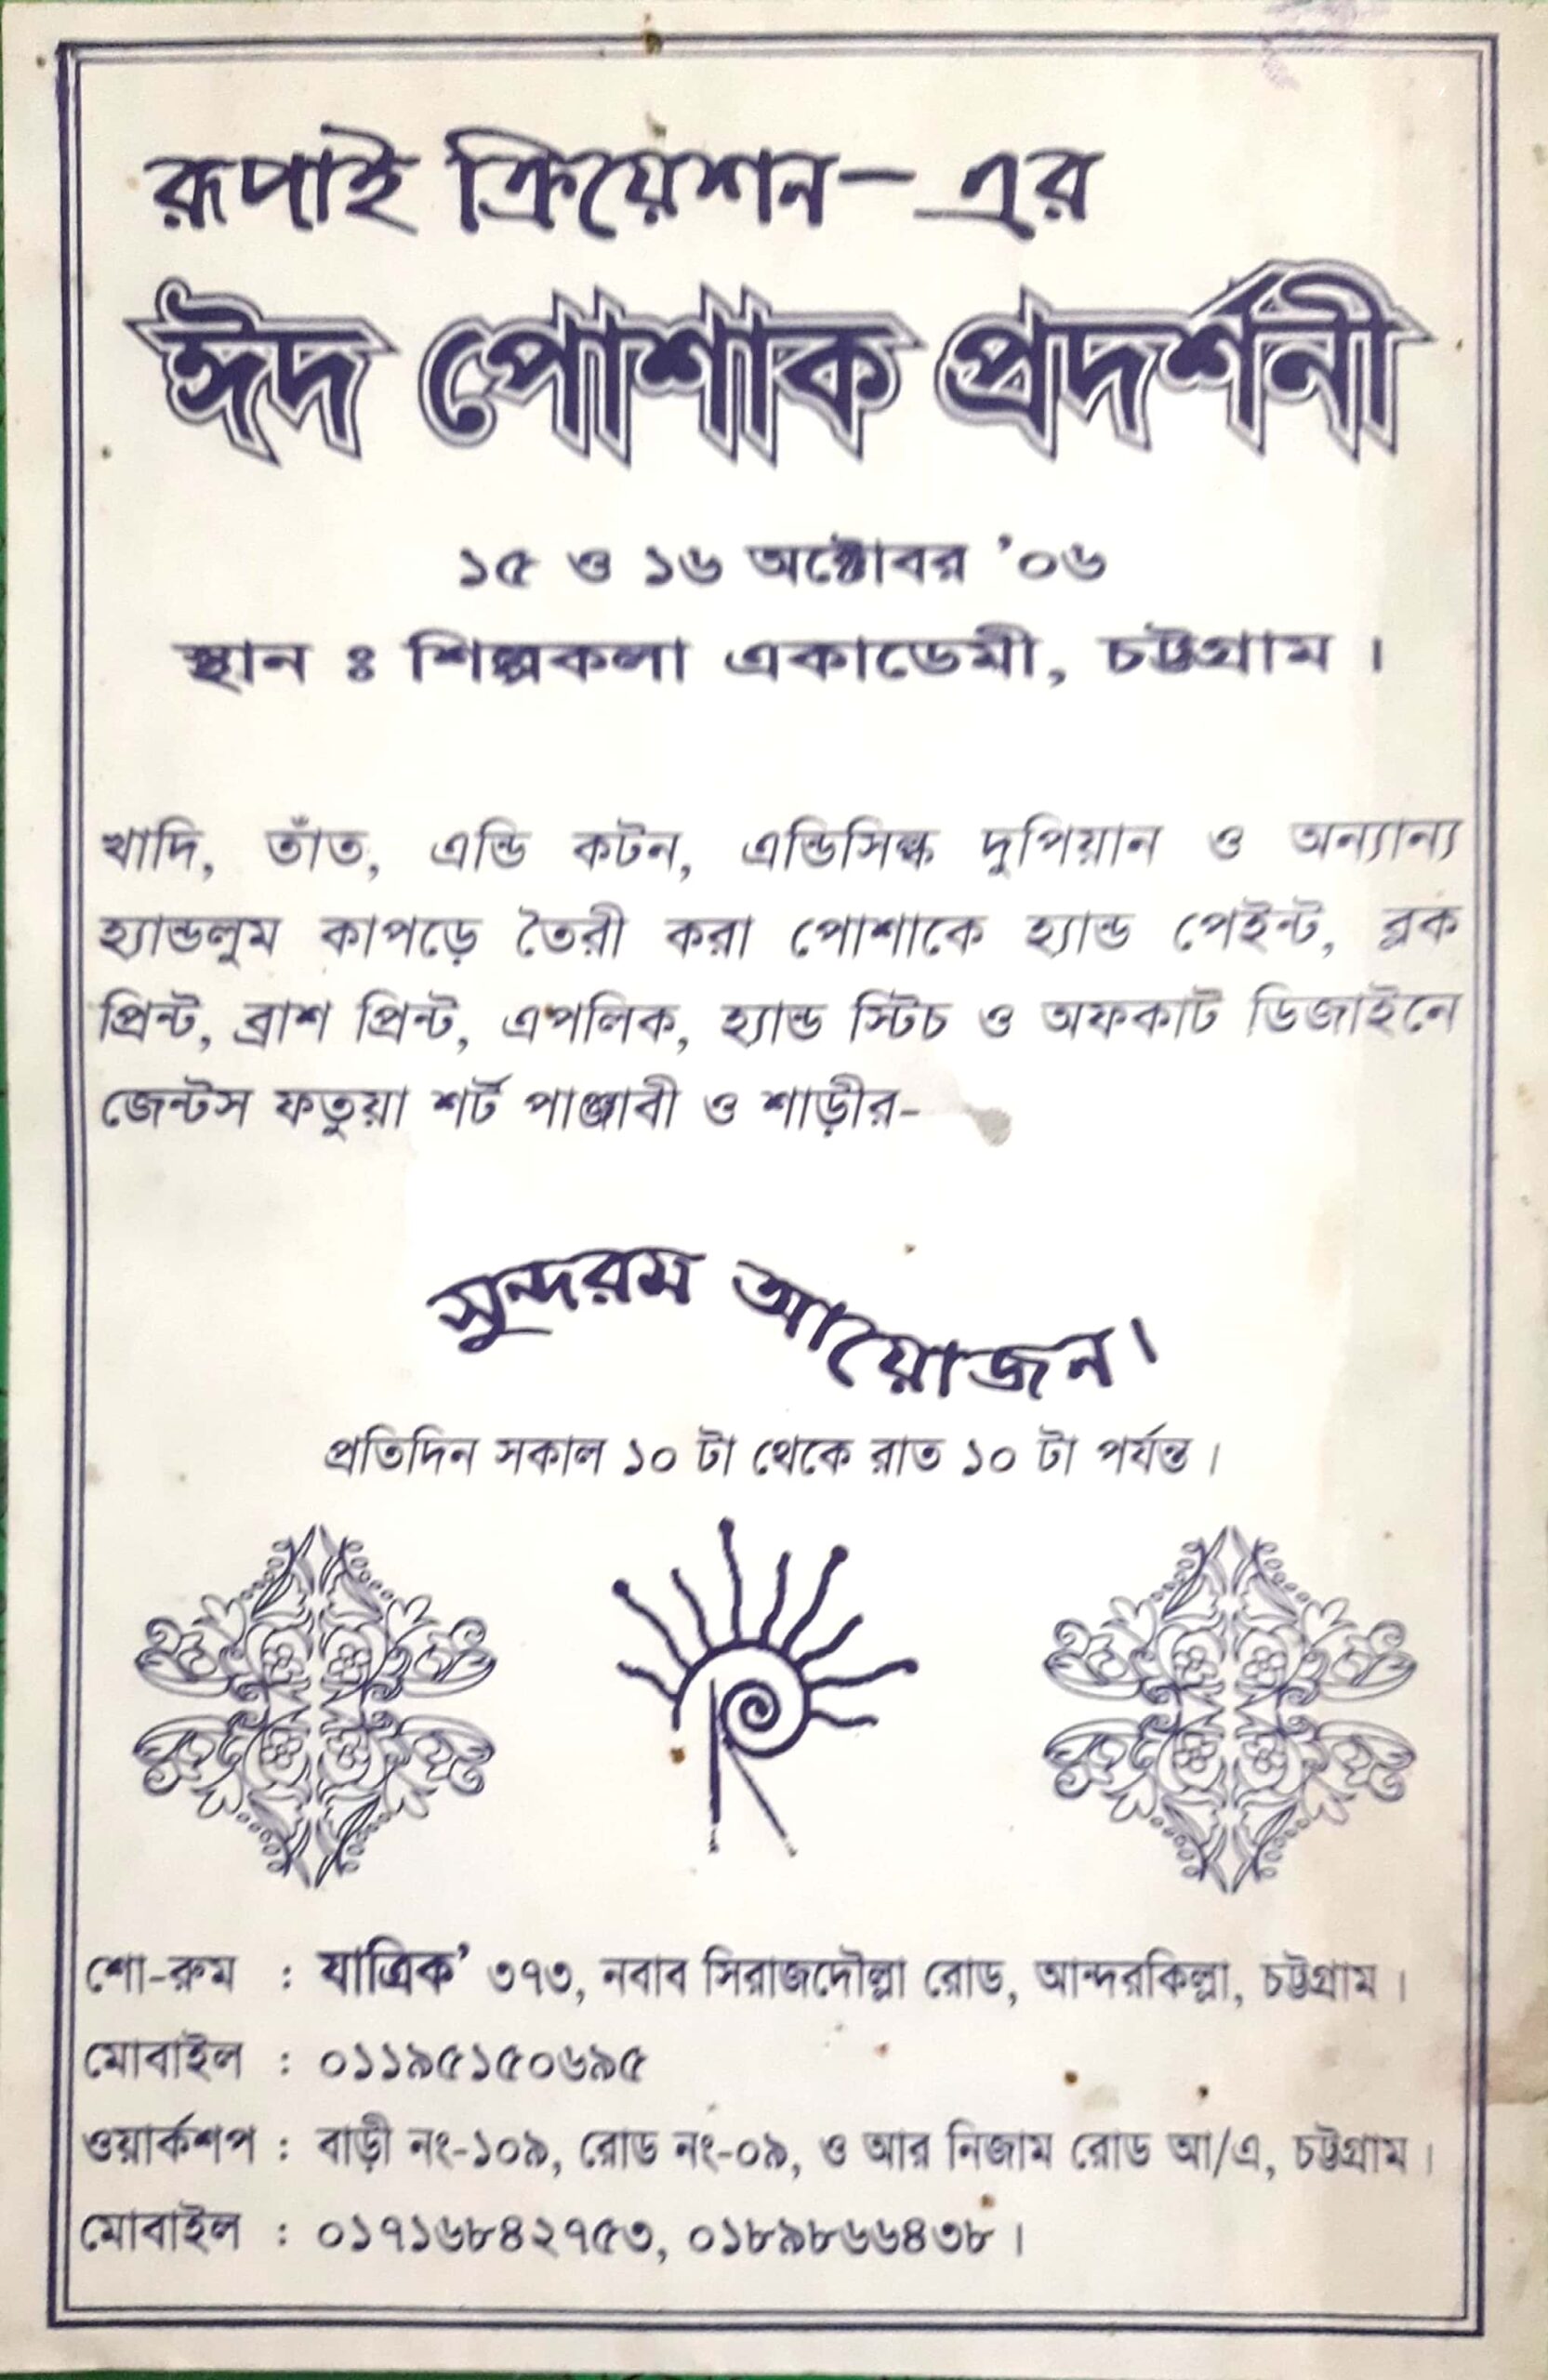 রূপাই ক্রিয়েশন-এর
ঈদ পোশাক প্রদর্শনী
১৫ ও ১৬ অক্টোবর '০৬
স্থান ঃ শিল্পকলা একাডেমী, চট্টগ্রাম ।
খাদি, তাঁত, এন্ডি কটন, এন্ডিসিল্ক দুপিয়ান ও অন্যান্য
হ্যান্ডলুম কাপড়ে তৈরী করা পোশাকে হ্যান্ড পেইন্ট, ব্লক
প্রিন্ট, ব্রাশ প্রিন্ট, এপলিক, হ্যান্ড স্টিচ ও অফকাট ডিজাইনে
জেন্টস ফতুয়া শর্ট পাঞ্জাবী ও শাড়ীর-
সুন্দরম আয়োজন।
প্রতিদিন সকাল ১০ টা থেকে রাত ১০ টা পর্যন্ত ।
শো-রুম : যাত্রিক' ৩৭৩, নবাব সিরাজদৌল্লা রোড, আন্দরকিল্লা, চট্টগ্রাম ।
মোবাইল : ০১১৯৫১৫০৬৯৫
ওয়ার্কশপ : বাড়ী নং-১০৯, রোড নং-০৯, ও আর নিজাম রোড আ/এ, চট্টগ্রাম ।
মোবাইল : ০১৭১৬৮৪২৭৫৩, ০১৮৯৮৬৬৪৩৮ ।